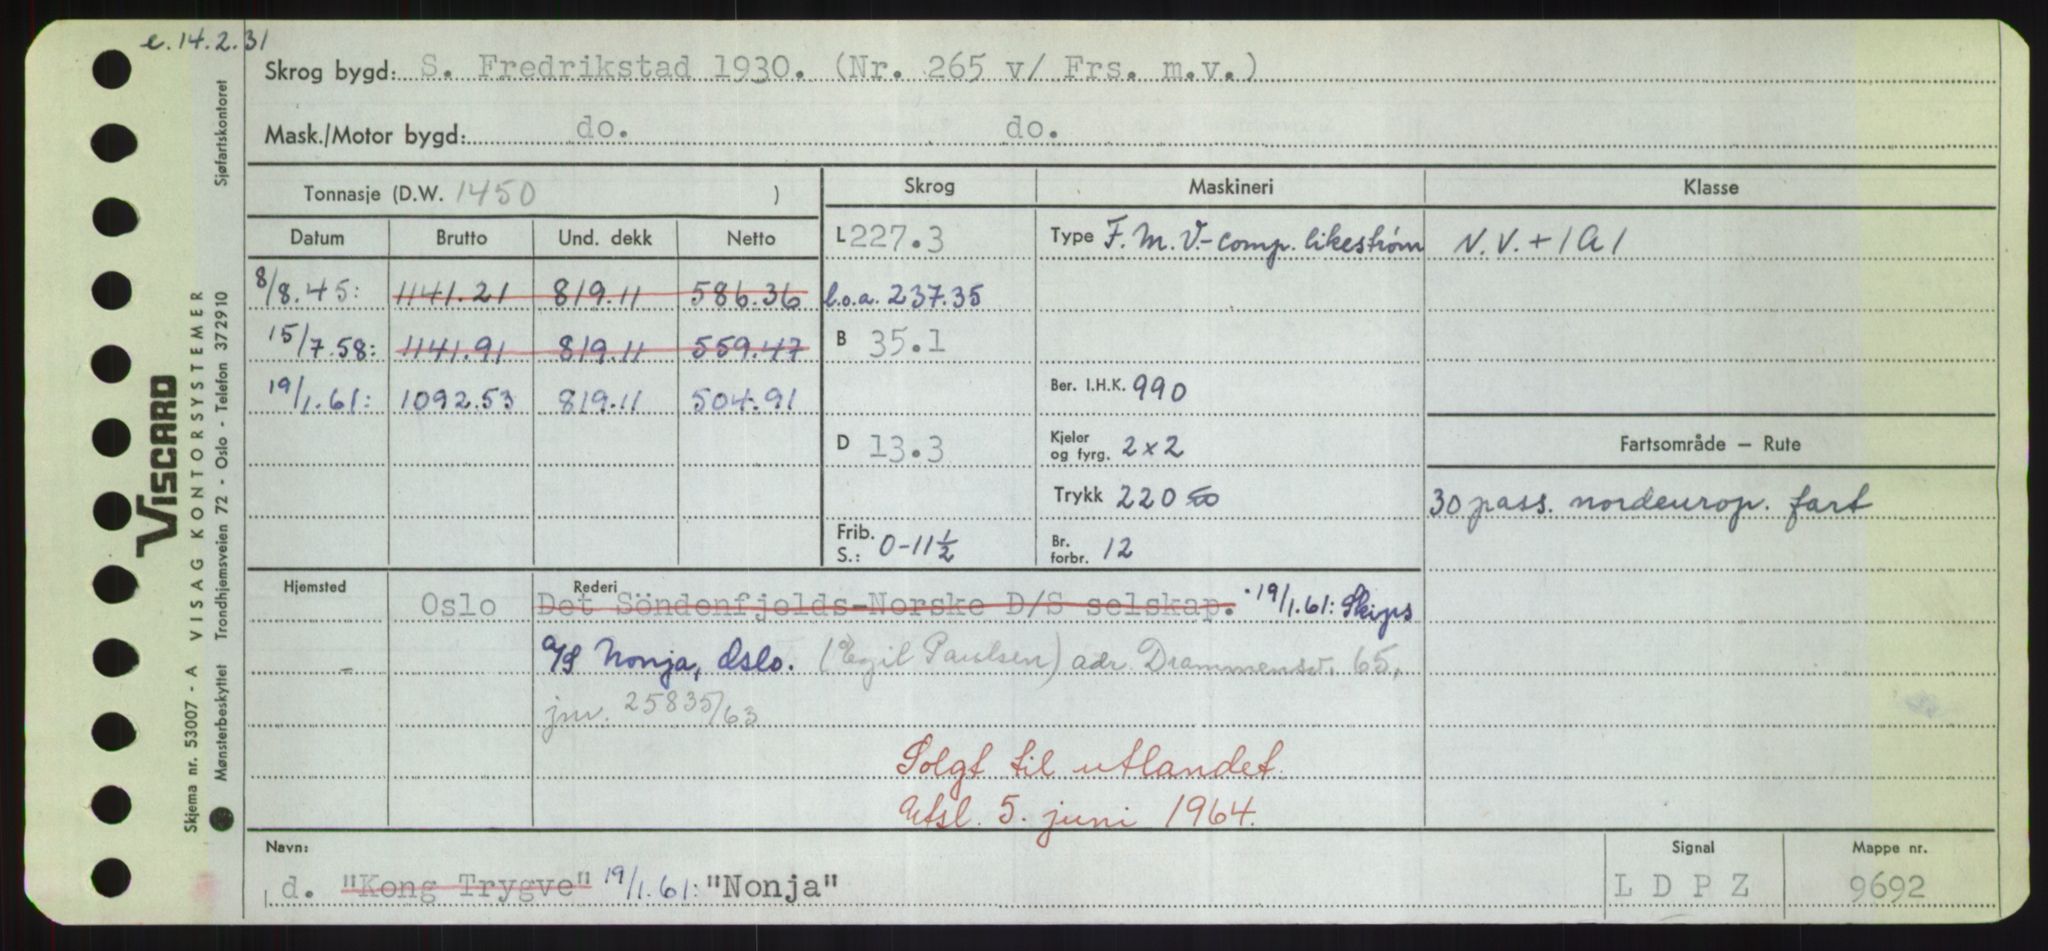 e. 14.2.31
Skrog bygd: S. Fredrikstad 1930. (Nr. 265 v/ Frs. m.v.)
Mask./Motor bygd: do. do.
Tonnasje (D.W. 1450 )
Datum Brutto Und. dekk Netto
8/8.45: 1141.21 819.11 586.36
15/7.58: 1141.91 819.11 559.47
19/1.61: 1092.53 819.11 504.91
Skrog
L 227.3
l.o.a. 237.35
B 35.1
D 13.3
Frib. S.: 0-11½
Maskineri
Type F.M.V.-comp. likestrøm
Ber. I.H.K. 990
Kjeler og fyrg. 2x2
Trykk 220
Br. forbr. 12
Klasse
N.V.+1A1
Fartsområde – Rute
30 pass. nordeurop. fart
Hjemsted Rederi
Oslo Det Söndenfjelds-Norske D/S selskap. 19/1.61: Skips
- A/S Nonja, Oslo. (Egil Paulsen) adr. Drammensv. 65,
jnr. 25835/63
Solgt til utlandet.
Utsl. 5. juni 1964.
Navn: Signal Mappe nr.
d. "Kong Trygve" 19/1.61: "Nonja" L D P Z 9692
VISCARD
Skjema nr. 53007 - A VISAG KONTORSYSTEMER
Mønsterbeskyttet Trondhjemsveien 72 - Oslo - Telefon 372910 Sjøfartskontoret